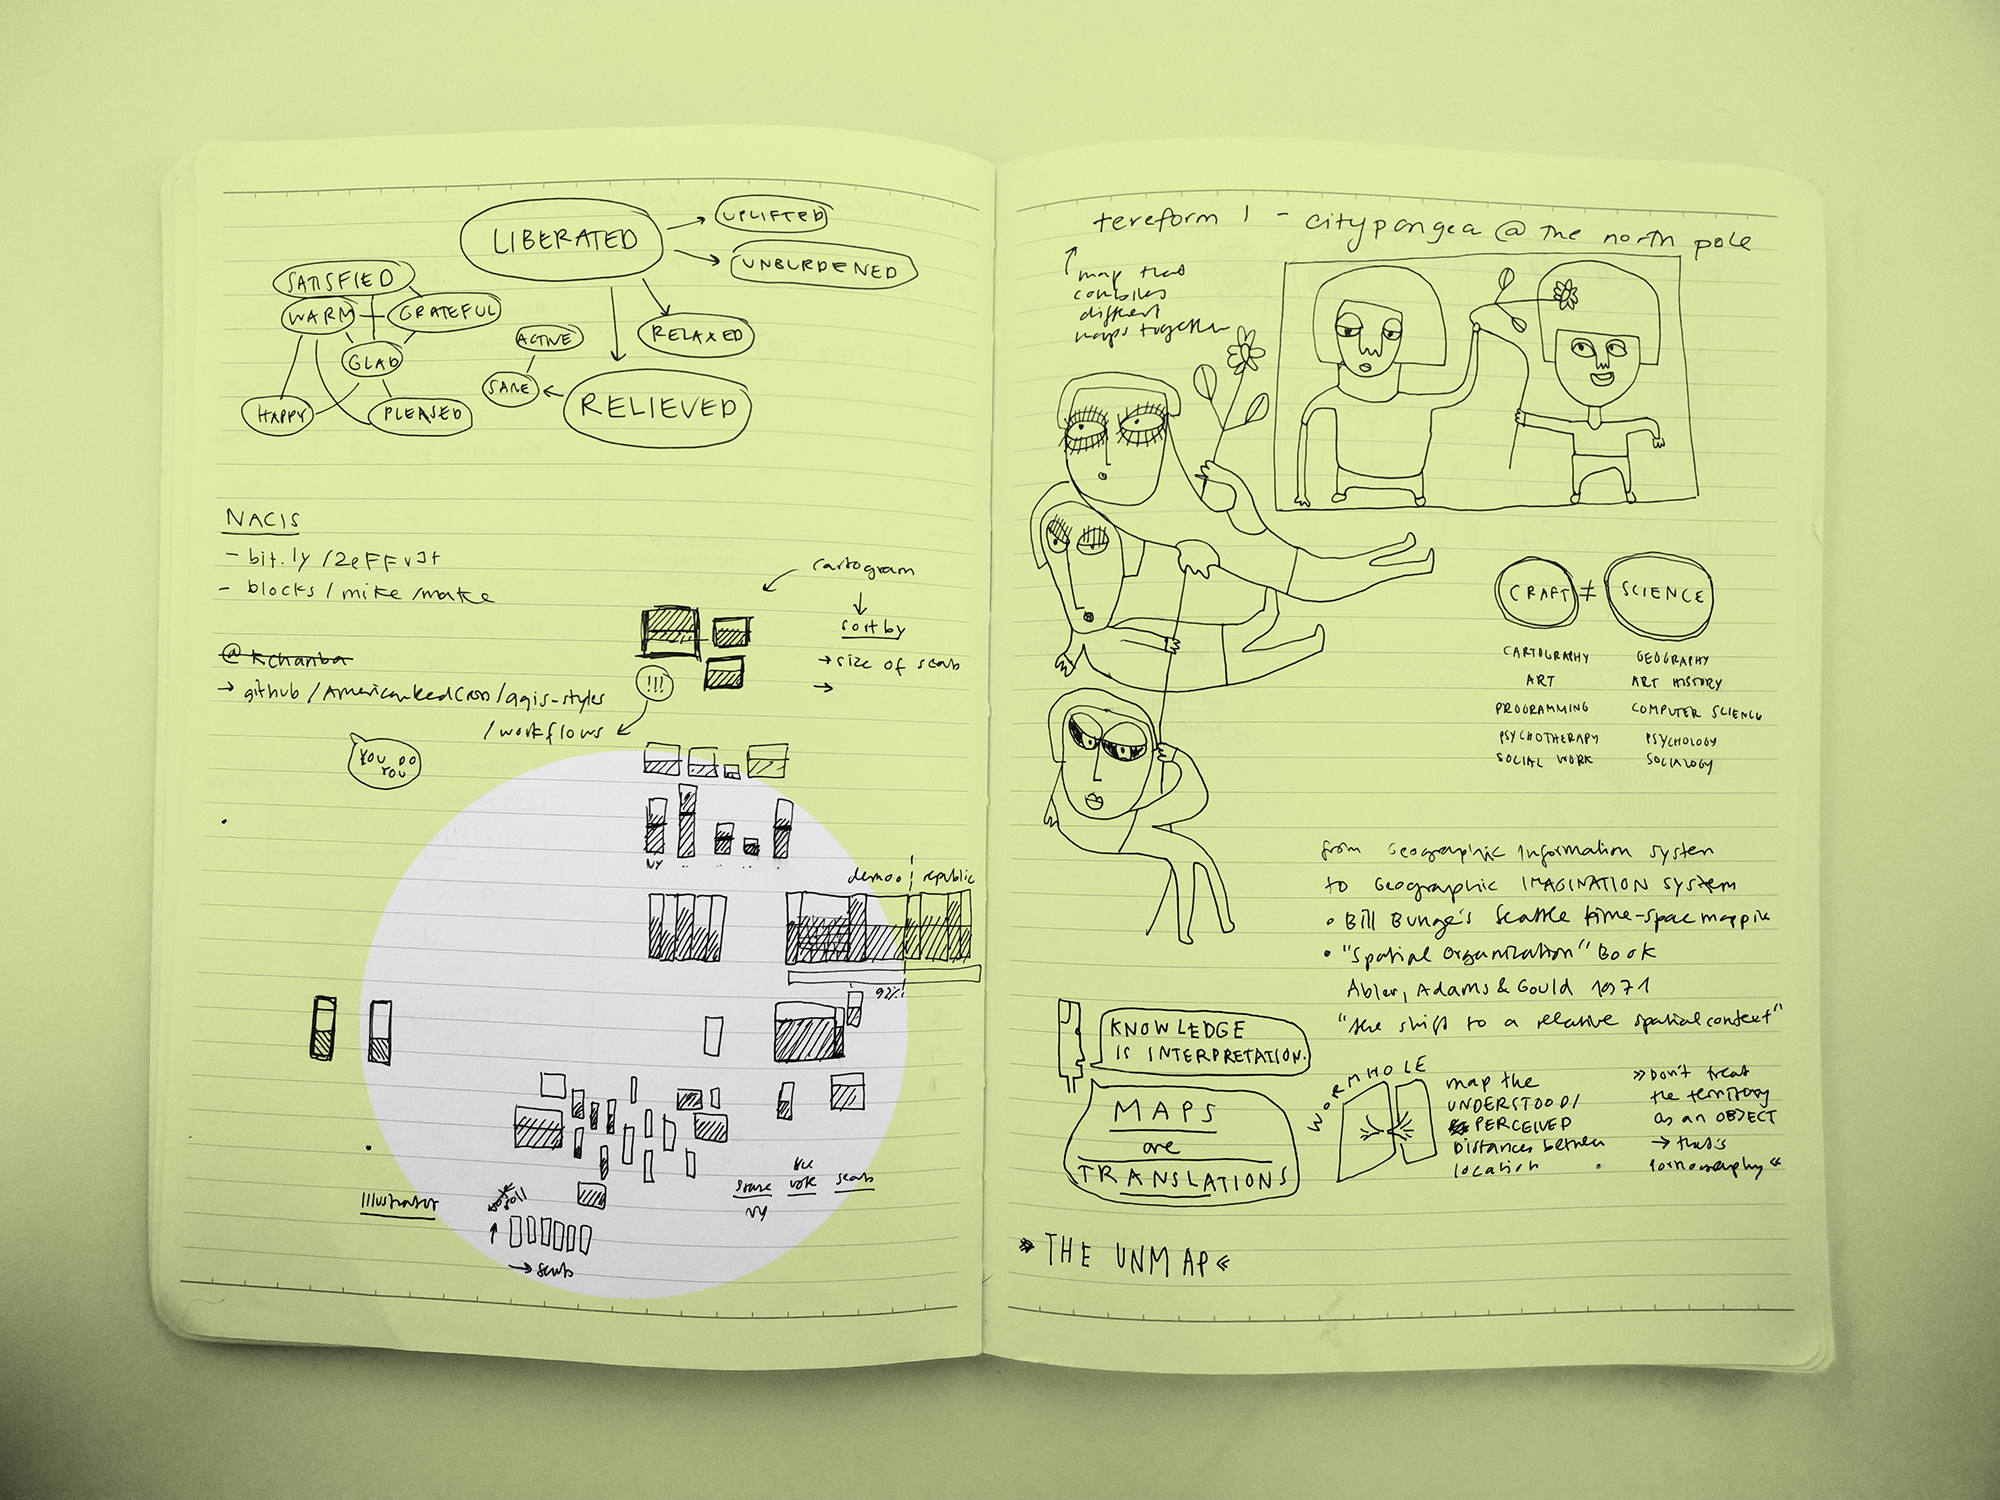 LIBERATED
UPLIFTED
UNBURDENED
RELAXED
RELIEVED
SANE
ACTIVE
SATISFIED
WARM
GRATEFUL
GLAD
HAPPY
PLEASED
NACIS
- bit.ly/2eFFvJt
- blocks/mike/make
@kchanba
→ github/AmericanRedCross/qgis-styles
/workflows
!!!
YOU DO
YOU
cartogram
↓
sort by
→ size of seats
→
NY
democ
republic
92%
state
NY
vote
seats
Illustrator
→ seats
tereform 1 - citypangea @ the north pole
map that
combines
different
maps together
CRAFT ≠ SCIENCE
CARTOGRAPHY GEOGRAPHY
ART ART HISTORY
PROGRAMMING COMPUTER SCIENCE
PSYCHOTHERAPY PSYCHOLOGY
SOCIAL WORK SOCIALOGY
from Geographic Information System
to Geographic IMAGINATION System
• Bill Bunge's Seattle time-space mappin
• "Spatial Organization" Book
Abler, Adams & Gould 1971
"the shift to a relative spatial context"
KNOWLEDGE
IS INTERPRETATION.
MAPS
are
TRANSLATIONS
WORMHOLE
map the
UNDERSTOOD/
PERCEIVED
Distances between
location
»Don't treat
the territory
as an OBJECT
→ that's
pornography«
» THE UNMAP «